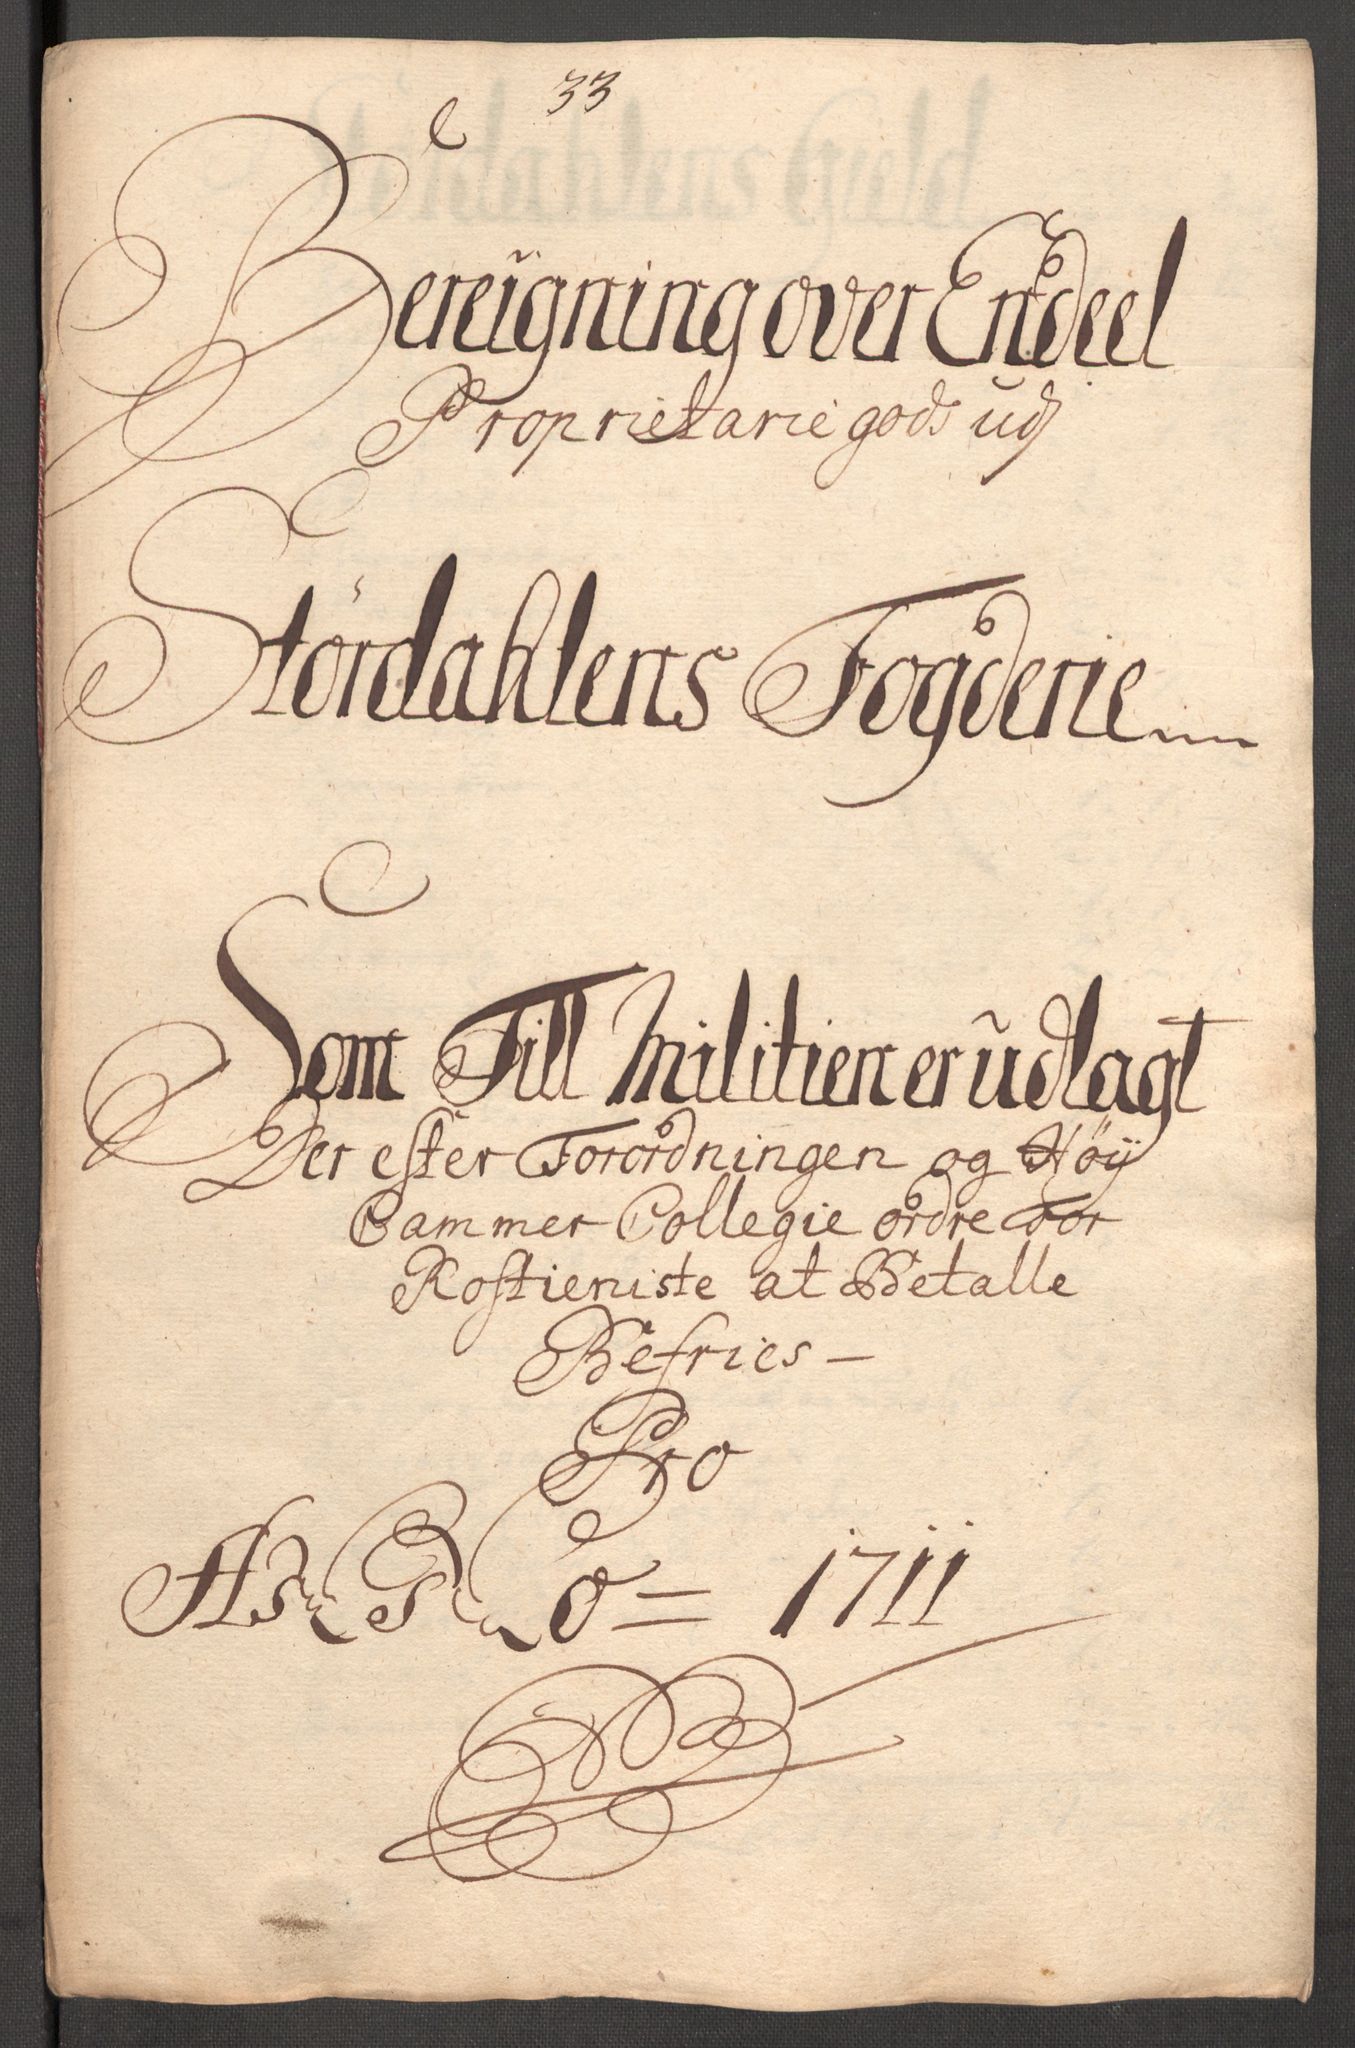 33
Bereigning over Endeel
Proprietarie gods udj
Størdahlens Fogderie
Som Till Militien er udlagt
Der efter Forordningen og Höÿ
Cammer Collegie ordre for
Rostieniste at Betalle
Befries –
Pro
1711